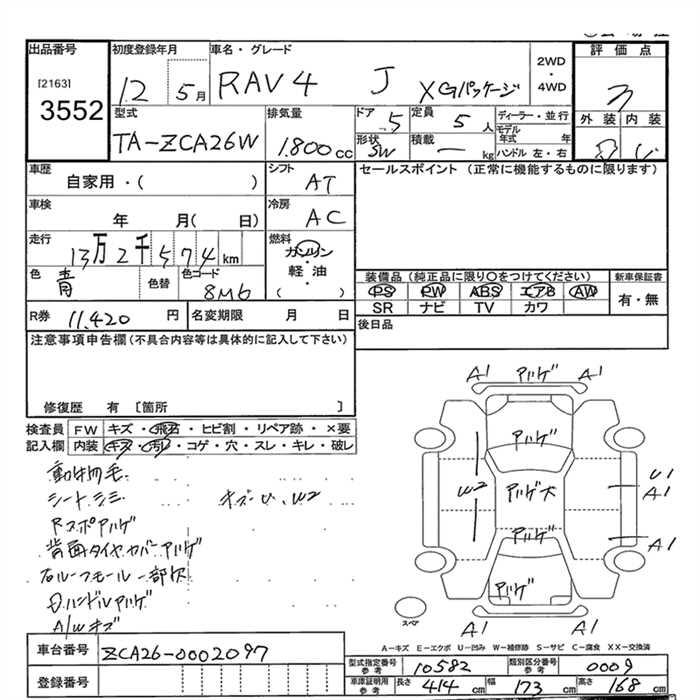 出品番号
[2163]
3552
初度登録年月
12 5月
車名・グレード
RAV4 J XGパッケージ
2WD
・
4WD
評価点
3
外装 内装
型式
TA-ZCA26W
排気量
1.800cc
ドア
5
形状
SW
定員
5人
積載
— kg
ディーラー・並行
モデル年式 年
ハンドル 左・右
車歴
自家用・( )
シフト
AT
セールスポイント (正常に機能するものに限ります)
車検
年 月( 日)
冷房
AC
走行
13万2千574km
燃料
ガソリン
・
軽油
( )
色
青
色替
色コード
8M6
装備品 (純正品に限り○をつけてください)
PS PW ABS エアB AW
SR ナビ TV カワ
新車保証書
有・無
R券 11.420 円
名変期限 月 日
後日品
注意事項申告欄(不具合内容等は具体的に記入して下さい)
修復歴 有 [箇所 ]
検査員記入欄
FW キズ・飛石・ヒビ割・リペア跡・×要
内装 キズ・汚レ・コゲ・穴・スレ・キレ・破レ
動物毛
シートシミ
キズ・U、W2
Rスポアハゲ
背面タイヤカバーアハゲ
右ルーフモール一部欠
Dハンドルアハゲ
A/Wキズ
A1 アハゲ A1
アハゲ
W2 アハゲ大 U1
A1
アハゲ A1
アハゲ
スペア
A1 A1
A-キズ E-エクボ U-凹み W-補修跡 S-サビ C-腐食 XX-交換済
車台番号 ZCA26-0002097
登録番号
型式指定番号 参考 10582
類別区分番号 参考 0009
車庫証明用 参考 長さ 414cm 幅 173cm 高さ 168cm